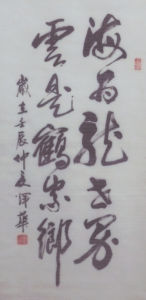 海為龍世界
雲是鶴家鄉
歲在壬辰仲夏